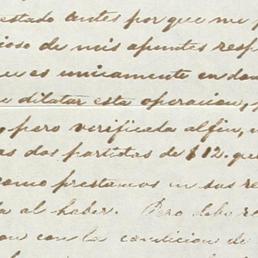 estado antes por que me p
cioso de mis apuntes resp
es unicamente en dar
dilatar esta operacion,
pero verificada al fin,
as dos partidas de $12. que
como prestamos en sus re
al haber. Pero debo re
con la condicion de